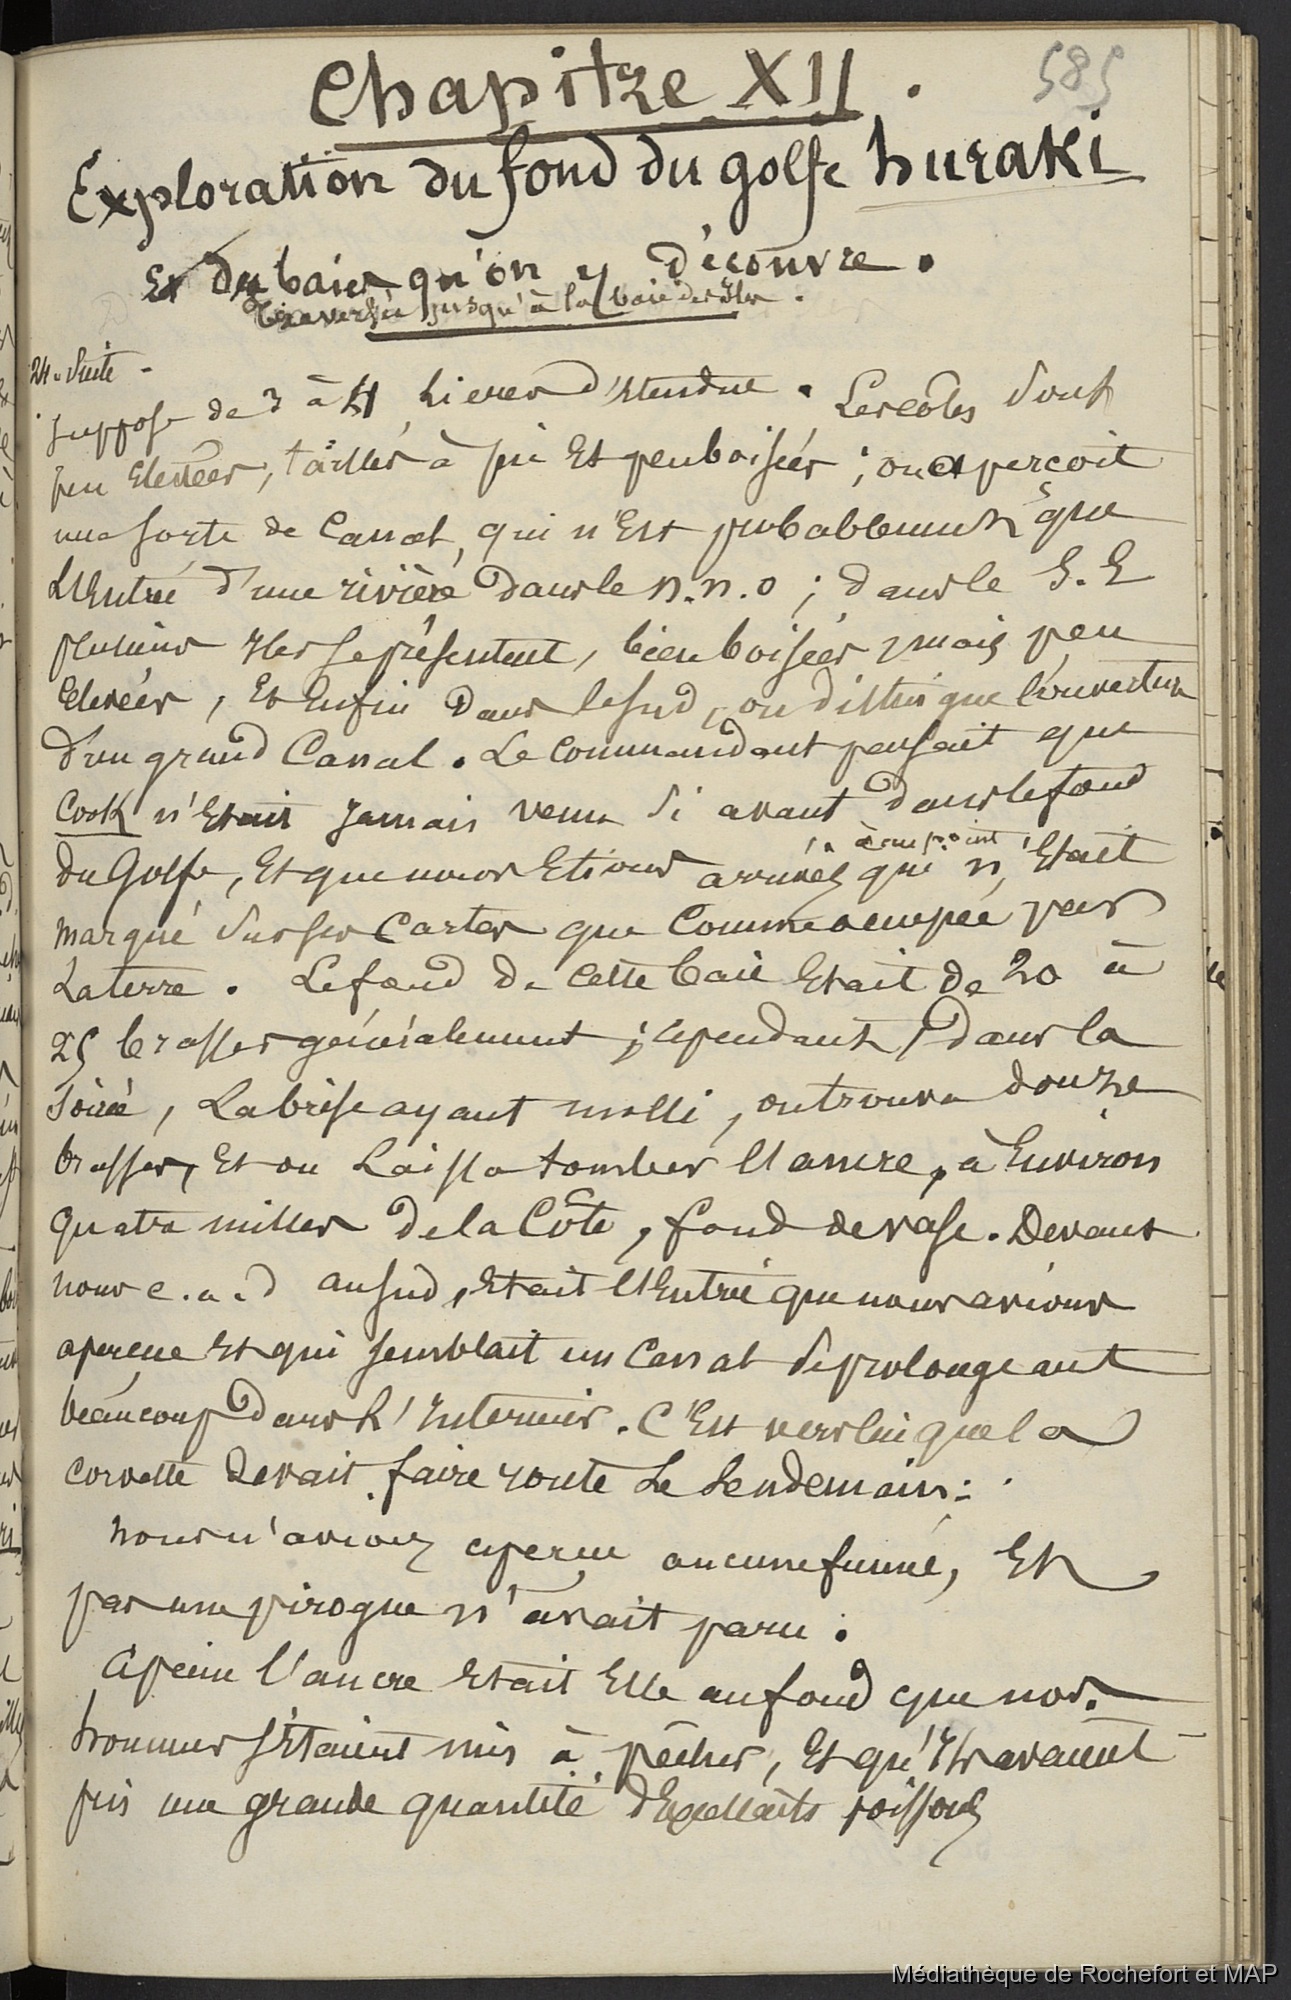 585
Chapitre XII.
Exploration du fond du golfe huraki
Et des baies qu'on y découvre.
Traversée jusqu'à la baie des Iles.
24. Suite -
suppose de 3 à 4 lieues d'Etendue. Les côtes sont
peu Elevées, taillés à pic Et peu boisées; on aperçoit
une sorte de Canal, qui n'Est probablement que
L'Entrée d'une rivière dans le n.n.o; dans le S.E
plusieurs Iles se présentent, bien boisées, mais peu
Elevées, Et Enfin dans le sud, on distingue l'ouverture
d'un grand Canal. Le Commandant pensait que
Cook n'Etait Jamais venu si avant dans le fond
du Golfe, Et que nous Etions arrivés à un point qui n'Etait
marqué sur ses Cartes que Comme occupée par
La terre. Le fond de cette baie Etait de 20 à
25 brasses généralement; cependant, dans la
soirée, La brise ayant molli, on trouva douze
brasses, Et on Laissa tomber l'ancre, à Environ
quatre milles de la Côte, fond de vase. Devant
nous c.a.d au sud, Etait l'Entrée que nous avions
aperçue Et qui semblait un Canal se prolongeant
beaucoup dans L'Interieur. C'Est vers lui que la
corvette devait faire route Le Lendemain:
nous n'avions aperçu aucune fumée, Et
pas une pirogue n'avait paru.
à peine l'ancre Etait Elle au fond que nos
hommes s'Etaient mis à pêcher, Et qu'Ils avaient
pris une grande quantité d'Excellents poissons
Médiathèque de Rochefort et MAP